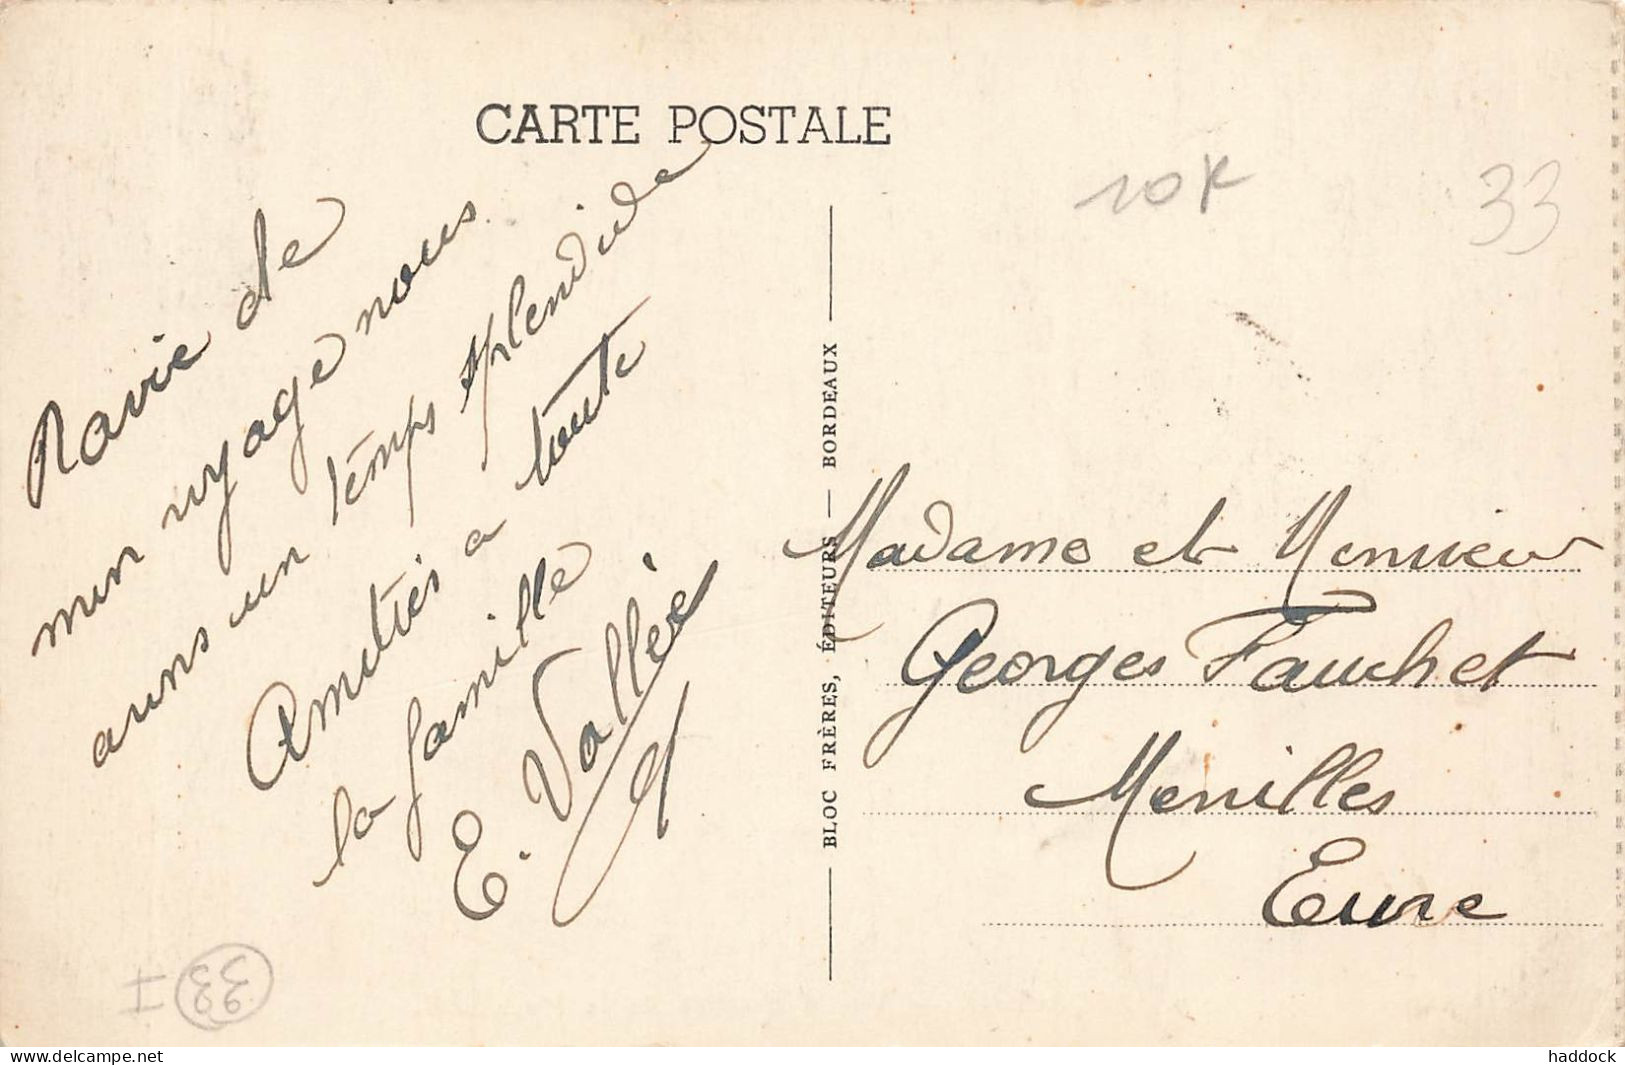 CARTE POSTALE
10K
33
Ravie de
mon voyage nous
avons un temps splendide
Amitiés a toute
la famille
E. Vallée
BLOC FRÈRES, ÉDITEURS — BORDEAUX
Madame et Monsieur
Georges Fauchet
Menilles
Eure
I 33
www.delcampe.net
haddock